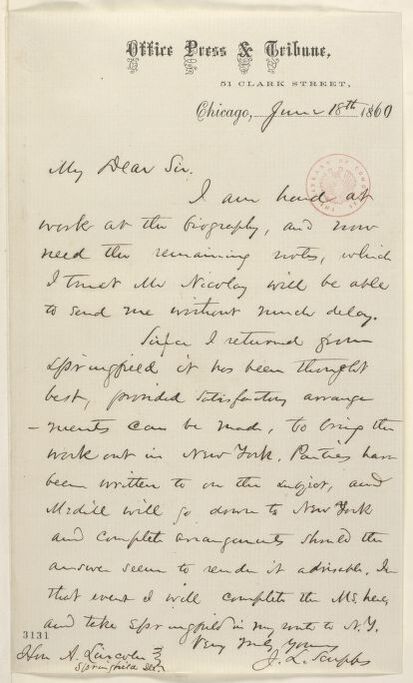 Office Press & Tribune,
51 CLARK STREET,
Chicago, June 18th 1860
My Dear Sir.
I am hard at
work at the biography, and now
need the remaining notes, which
I trust Mr Nicolay will be able
to send me without much delay.
Since I returned from
Springfield it has been thought
best, provided satisfactory arrange
-ments can be made, to bring the
work out in New York. Parties have
been written to on the subject, and
Medill will go down to New York
and complete arrangements should the
answer seem to render it advisable. In
that event I will complete the MS. here,
and take Springfield in my route to N.Y.
Very truly yours
J. L. Scripps
Hon A. Lincoln
Springfield Ill.
3131
LIBRARY OF CONGRESS